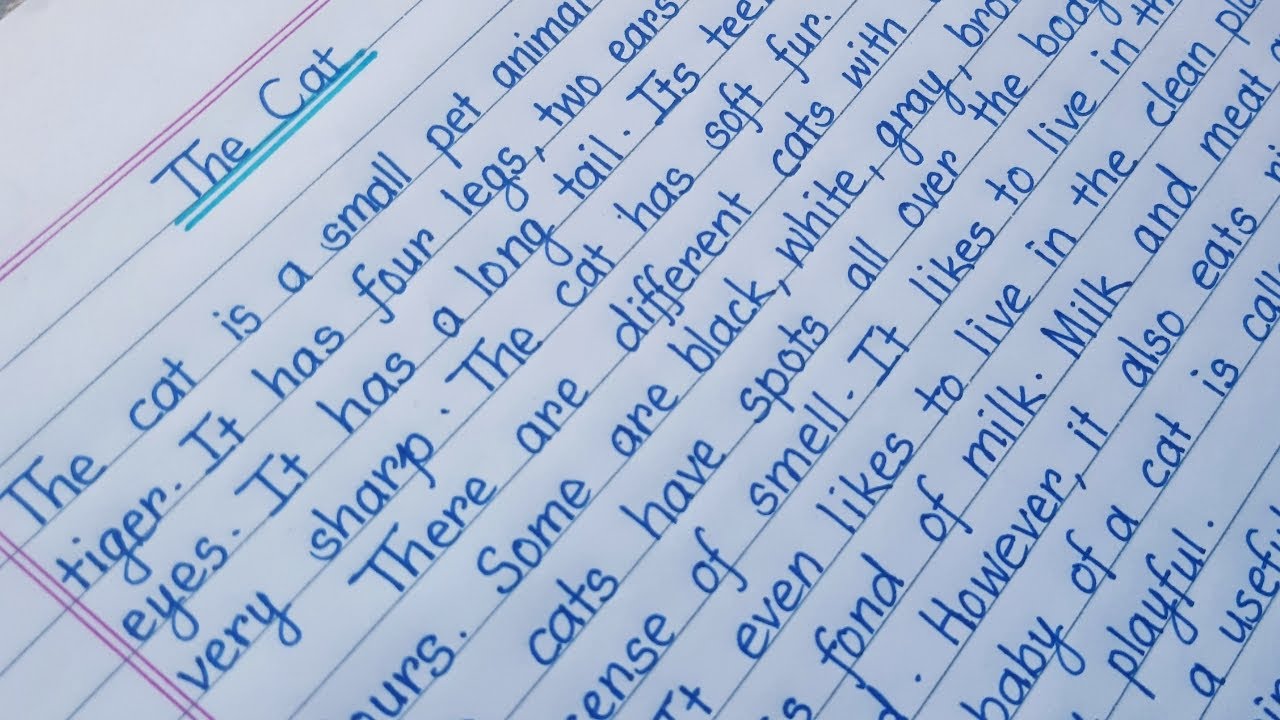 The Cat
The cat is a small pet animal
tiger. It has four legs, two ears
eyes. It has a long tail. Its
very sharp. The cat has soft fur.
There are different cats with
ours. Some are black, white, gray,
cats have spots all over the body
sense of smell. It likes to live in
It even likes to live in the clean
fond of milk. Milk and meat
. However, it also eats
baby of a cat is
playful.
a